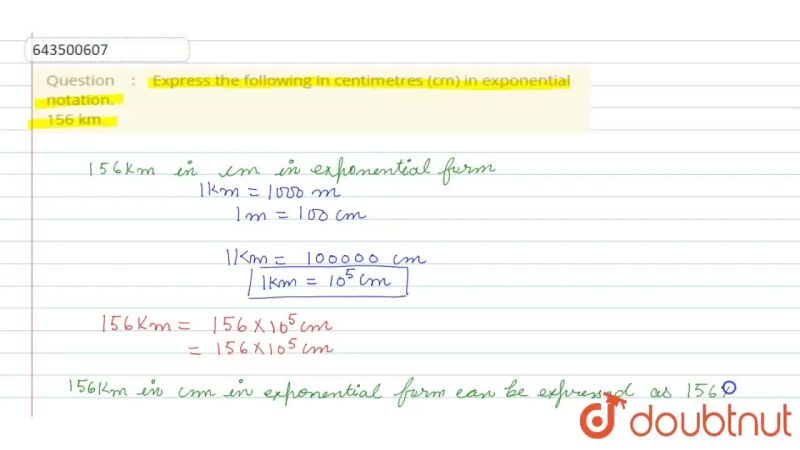 643500607
Question : Express the following in centimetres (cm) in exponential
notation.
156 km
156Km in cm in exponential form
1Km = 1000 m
1m = 100 cm
1Km = 100000 cm
1Km = 10⁵ cm
156Km = 156 × 10⁵ cm
= 156 × 10⁵ cm
156Km in cm in exponential form can be expressed as 156×
doubtnut